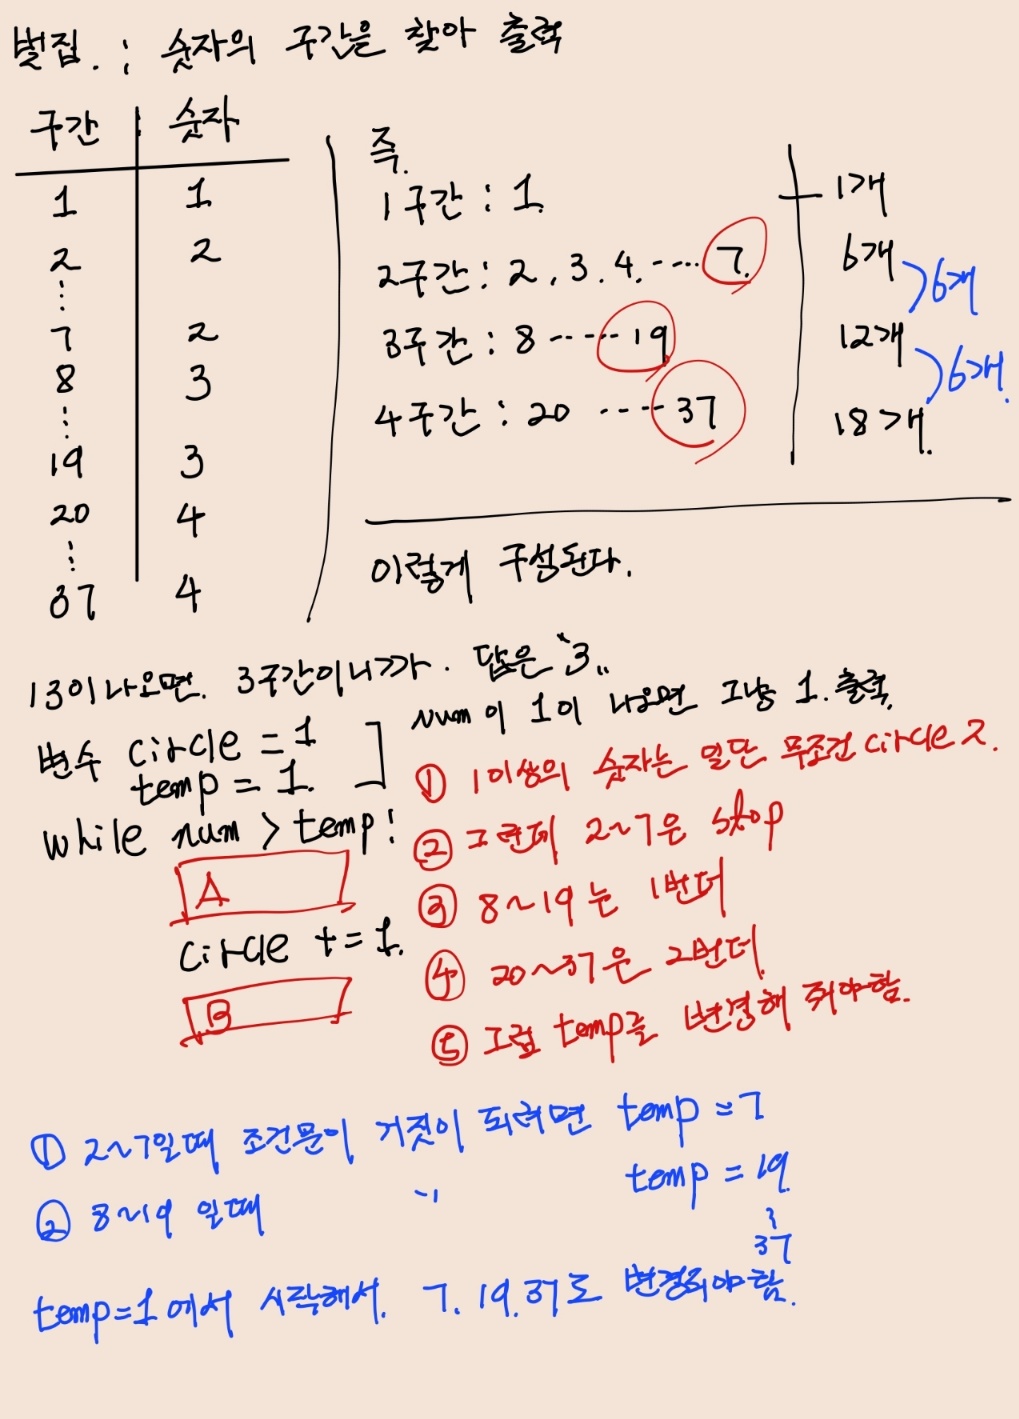 벌집. : 숫자의 구간을 찾아 출력
구간 : 숫자
1 1
2 2
⋮
7 2
8 3
⋮
19 3
20 4
⋮
37 4
즉.
1구간 : 1.
2구간 : 2, 3. 4. ---- 7.
3구간 : 8 ------ 19
4구간 : 20 ---- 37
1개
6개
12개
18개.
6개
6개.
이렇게 구성된다.
13이 나오면. 3구간이니까. 답은 "3"
변수 circle = 1
temp = 1.
while num > temp:
A
circle += 1.
B
num이 1이 나오면 그냥 1. 출력.
① 1이상의 숫자는 일단 무조건 circle 2.
② 그런데 2~7은 stop
③ 8~19는 1번더
④ 20~37은 2번더
⑤ 그럼 temp를 변경해 줘야함.
① 2~7일때 조건문이 거짓이 되려면 temp = 7
② 8~19 일때 " temp = 19
37
temp=1 에서 시작해서. 7. 19. 37로 변경되야 함.